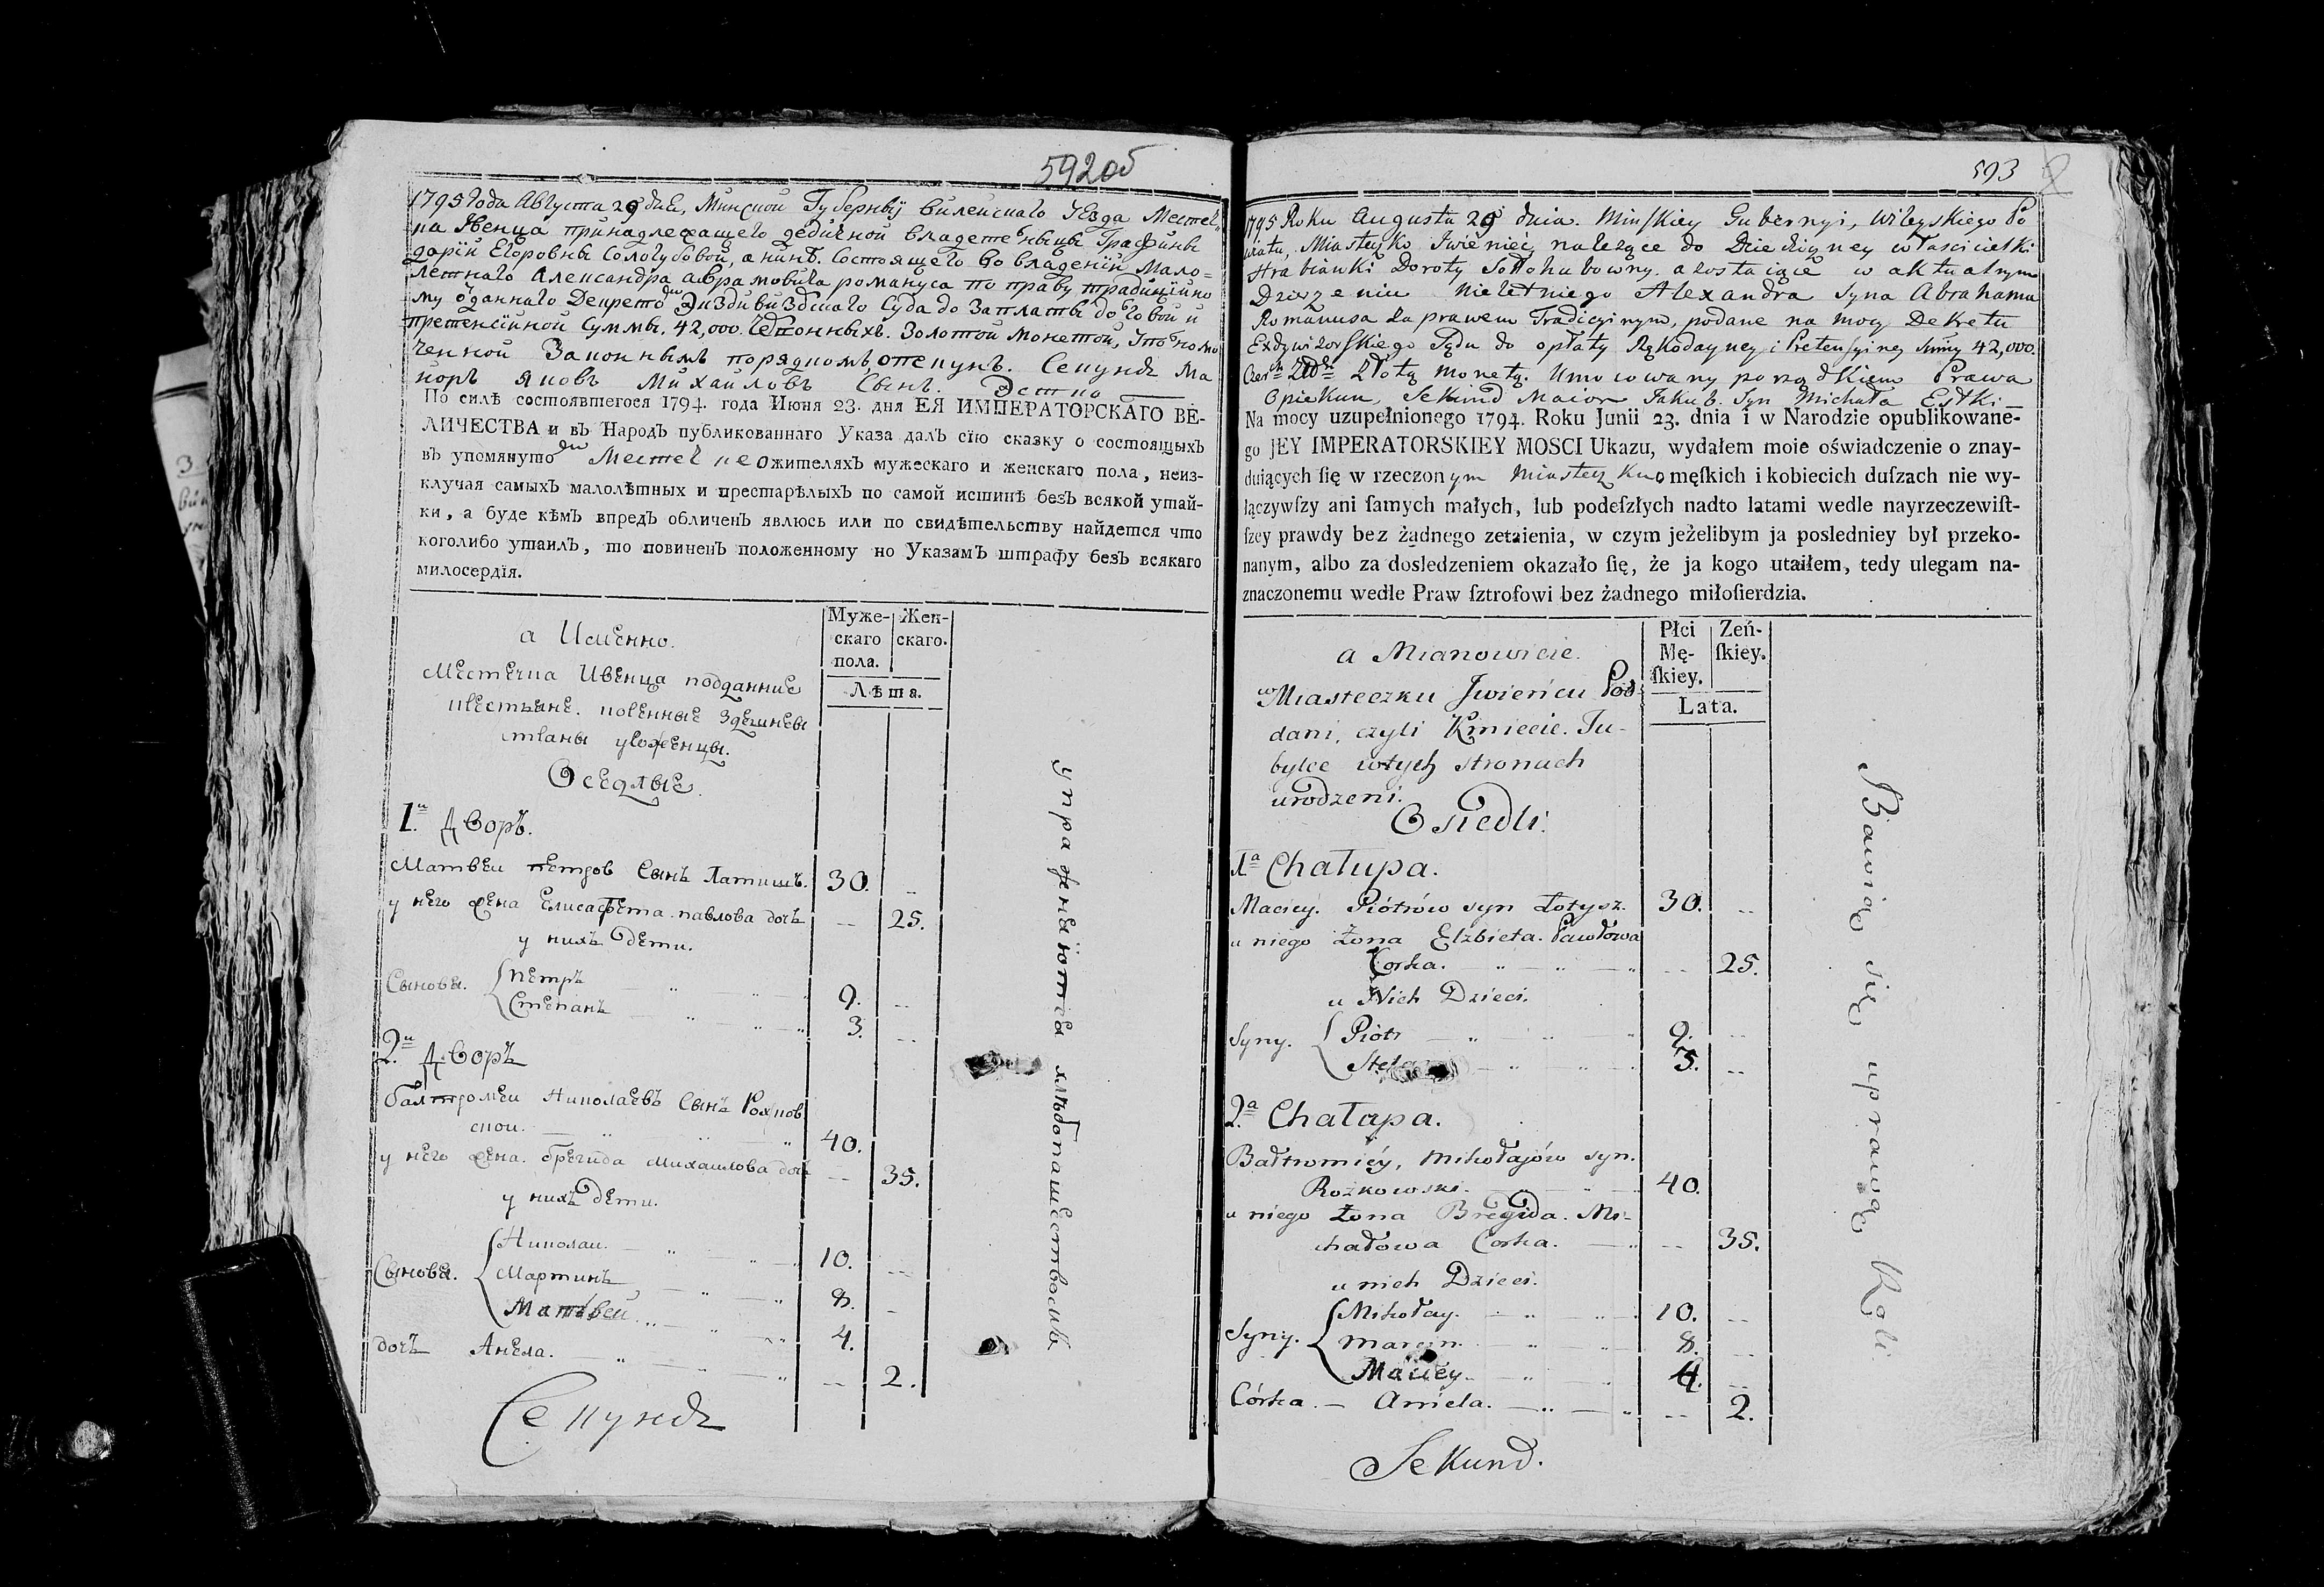 592об
1795 Года Августа 29 дня, Минской Губернѣи вилейскаго уезда Местеч
ка Ивенца принадлежащего дедичной владетельницы Графины
дарїи Егоровны Сологубовой, а нынѣ. состоящего во владенїи Мало-
летнаго Александра аврамовича романуса по праву традицїино
му отданнаго Декретомъ Экздивизбскаго Суда до заплаты долговой и
претенсїинной суммы. 42,000. Червонныхъ. Золотой монетой,
ченной Законнымъ порядкомъ опекунъ. Секундъ Ма
иоръ яковъ Михайловъ Сынъ. Эстко
По силѣ состоявшегося 1794. года Июня 23. дня ЕЯ ИМПЕРАТОРСКАГО ВЕ-
ЛИЧЕСТВА и въ Народъ публикованнаго Указа далъ сїю сказку о состоящыхъ
въ упомянутомъ Местечке ожителяхъ мужескаго и женскаго пола, неиз-
ключая самыхъ малолѣтныхъ и престарѣлыхъ по самой истинѣ безъ всякой утай-
ки, а буде кѣмъ впредъ обличенъ явлюсь или по свидѣтельству найдется что
коголибо утаилъ, то повиненъ положенному но Указамъ штрафу безъ всякаго
милосердїя.
а Именно.
Муже-
скаго
пола.
Жен-
скаго.
Лѣта.
Местечка Ивенца подданние
крестьяне. коренные здешневы
уроженцы.
Оседлые.
1.й дворъ.
Матвеи петров Сынъ Латышъ. 30. ..
у него жена Елисавета павлова дочь -- 25.
у нихъ дети.
Сыновья. { петръ — „ — „ 9. --
Степанъ — „ — „ 3. --
2.й дворъ
балтромеи Николаевъ Сынъ Рожков
ской. — „ „ — „ 40.
у него жена. брегида михаилова дочь -- 35.
у нихъ дети.
Николаи. — „ — „ 10. --
Сыновья. { Мартинъ — „ — „ 8. -
Матвеи. „ — „ — „ 4.
дочь Анеля. — „ — „ -- 2.
Секундъ
упражняются хлѣбопашествомъ
593
1795 Roku Augusta 29 dnia. Minſkiey Gubernyi, Wileyskiego Po
wiatu, Miasteczko Iwieniec należące do Dziedziczney własścicielki
Hrabianki Doroty Sołłohubowny. a zostaiące w aktualnym
Dzierżeniu Nieletniego Alexandra syna Abrahama
Romanusa za prawem Tradicyinym, podane na mocy Dekretu
Exdywizorſkiego Sądu do opłaty Rękodayney i Pretenſyiney Summy 42,000.
Złotą monetą. Umocowany porządkiem Prawa
Opiekun, Sekund Maior Jakub. Syn Michała Estki
Na mocy uzupełnionego 1794. Roku Junii 23. dnia i w Narodzie opublikowane-
go JEY IMPERATORSKIEY MOSCI Ukazu, wydałem moie oświadczenie o znay-
duiących ſię w rzeczonym Miasteczku o męſkich i kobiecich duſzach nie wy-
łączywſzy ani ſamych małych, lub podeſzłych nadto latami wedle nayrzeczewiſt-
ſzey prawdy bez żadnego zetaienia, w czym jeżelibym ja posledniey był przeko-
nanym, albo za dosledzeniem okazało ſię, że ja kogo utaiłem, tedy ulegam na-
znaczonemu wedle Praw ſztrofowi bez żadnego miłoſierdzia.
a Mianowicie.
Płci
Mę-
ſkiey.
Zeń-
ſkiey.
Lata.
w Miasteczku Jwieńcu Pod-
dani, czyli Kmiecie. Tu-
bylce wtych stronach
urodzeni.
Osiedli.
1.a Chałupa.
Maciey. Piótrów syn Łotysz. 30. --
u niego żona Elżbieta. Pawłowa
Corka. — „ — „ — „ -- 25.
u Nich Dzieci.
Syny. { Piotr — „ — „ — „ 9. --
Stefan — „ — „ — „ 3. --
2.a Chałapa.
Bałtromiéy, Mikołajów syn.
Rożkowski. 40.
u niego żona Bregida. Mi-
chałowa Corka. — „ -- 35.
u nich Dzieci.
Mikołay. — „ — „ 10. --
Syny. { Marcin. — „ — „ 8. --
Maciey. — „ — „ 4. --
Córka. — Aniela. — „ — „ -- 2.
Sekund.
Bawią się uprawą Roli